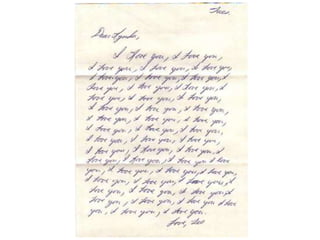 Tues.
Dear Lynda,
I love you, I love you,
I love you, I love you, I love you,
I love you, I love you, I love you,
I love you, I love you, I love you, I
love you, I love you, I love you,
I love you, I love you, I love you,
I love you, I love you, I love you,
I love you, I love you, I love you,
I love you, I love you, I love you,
I love you, I love you, I love you, I
love you, I love you, I love you I love
you, I love you, I love you, I love you,
I love you, I love you, I love you, I
love you, I love you, I love you, I
love you, I love you, I love you I love
you, I love you, I love you.
Love,